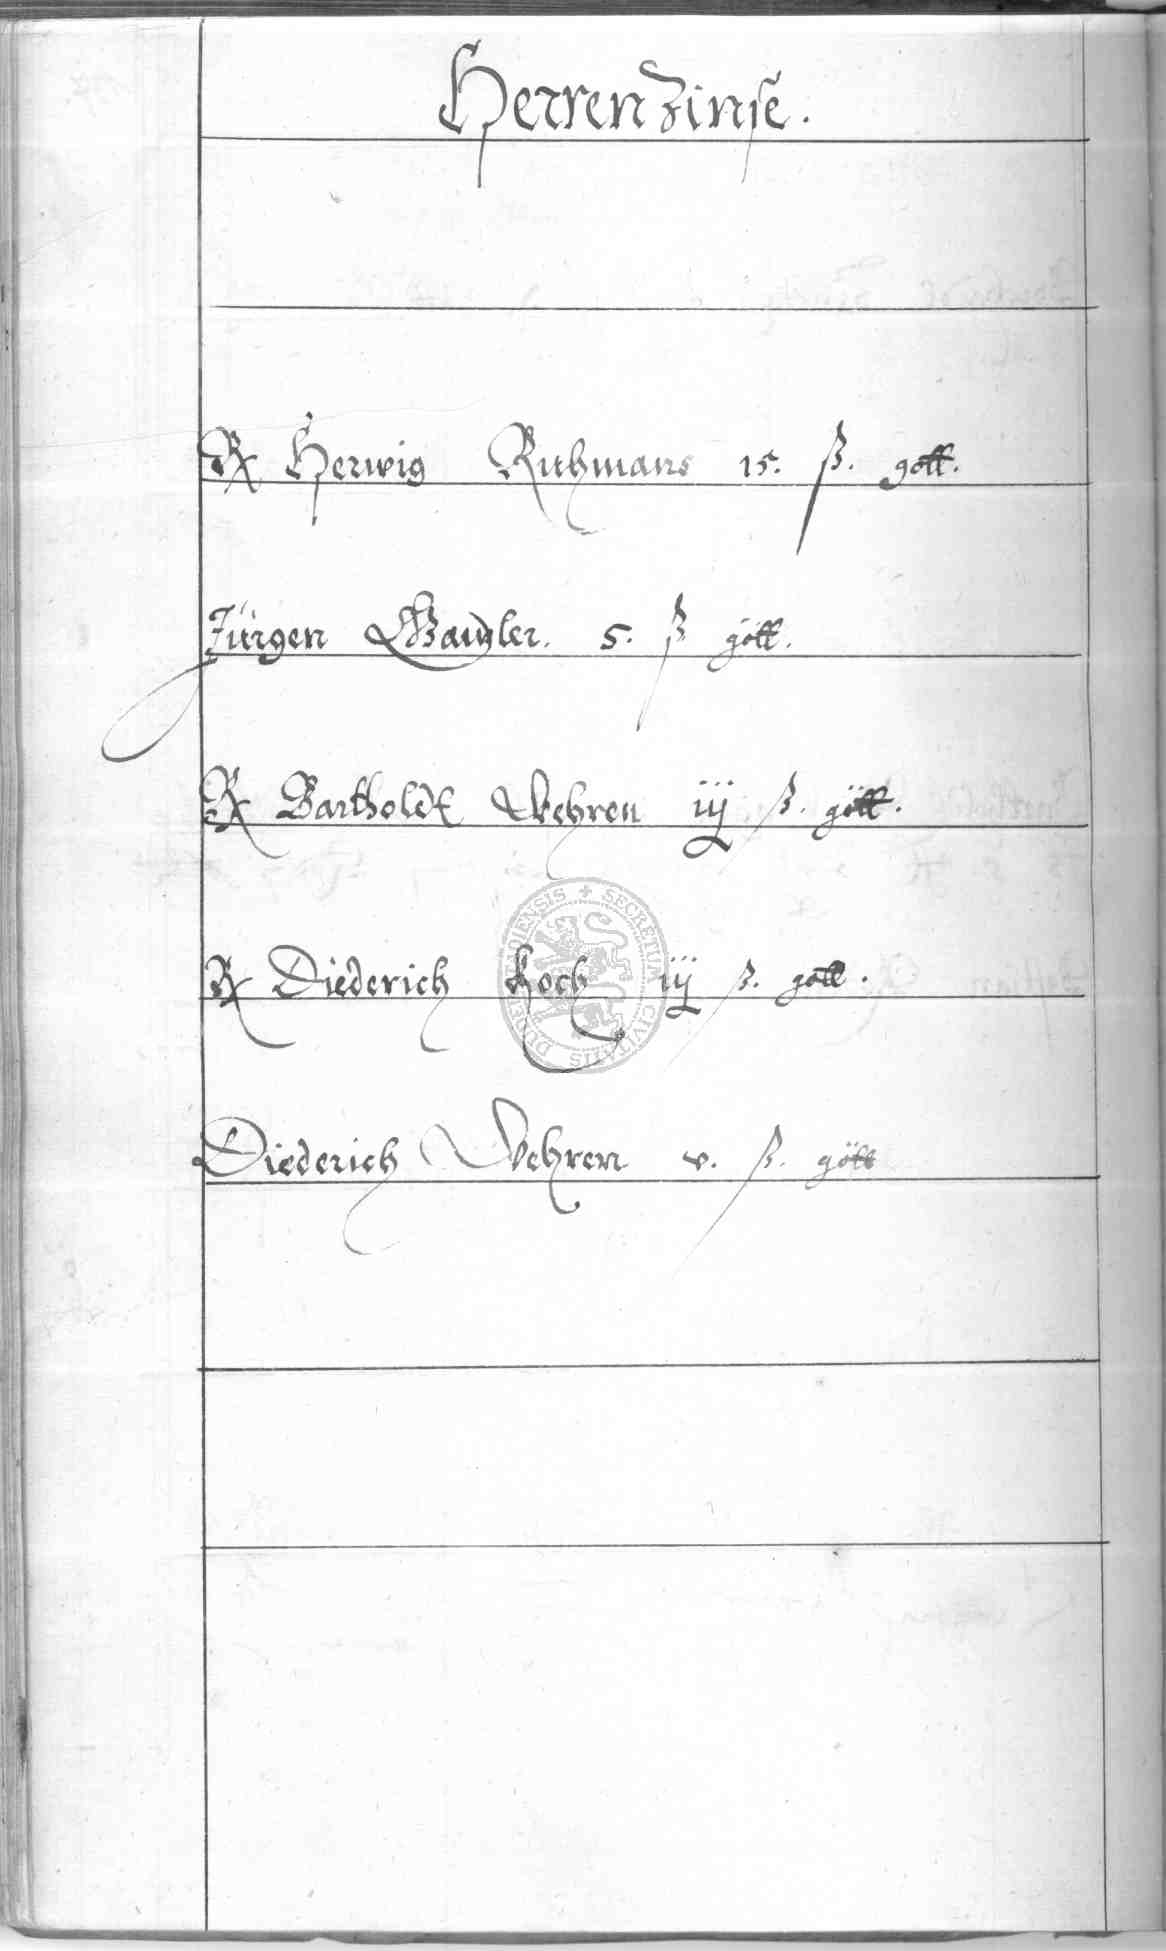 Herren Zinse.
Rx Herwig Ruhmans 15. ß. gött.
Jürgen 5. ß gött.
Rx Bartholdt Wehren iij ß. gött.
Rx Diederich Koch iij ß. gött.
SECRETUM CIVITATIS
Diederich Wehren v. ß. gött